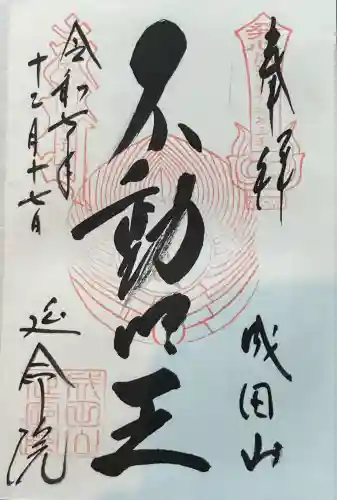 奉拝
成田山
不動明王
令和七年
十二月十七日
延命院